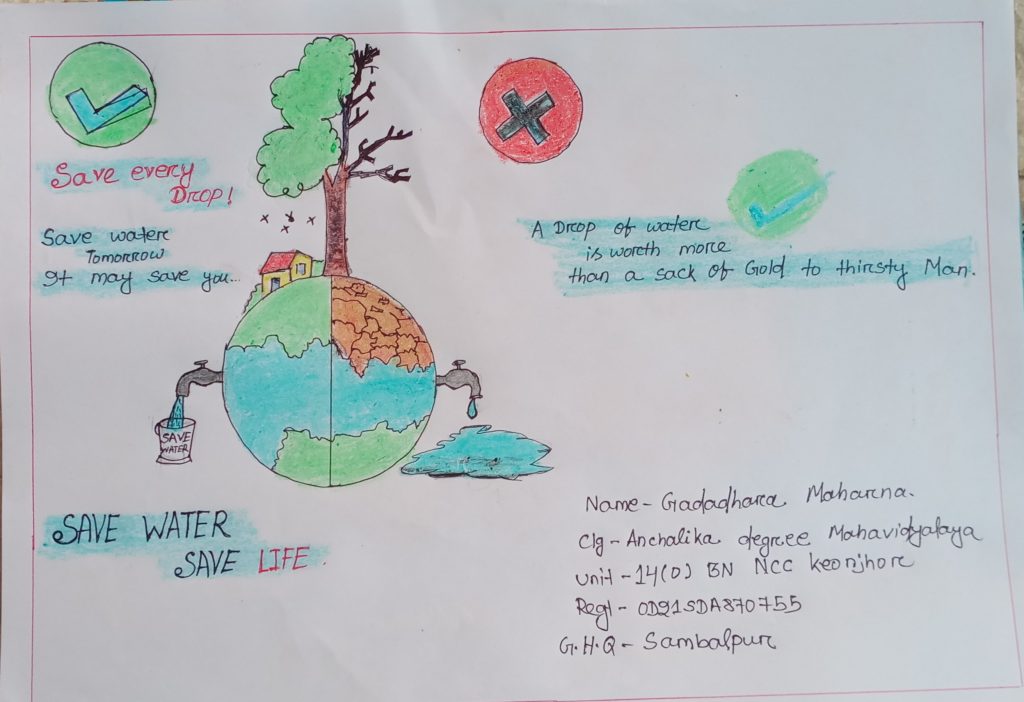 Save every
Drop!
Save water
Tomorrow
It may save you...
A Drop of water
is worth more
than a sack of Gold to thirsty Man.
SAVE
WATER
SAVE WATER
SAVE LIFE.
Name - Gadadhara Maharna.
Clg - Anchalika degree Mahavidyalaya
Unit - 14(O) BN NCC Keonjhor
Regl - OD21SDA870755
G.H.Q - Sambalpur